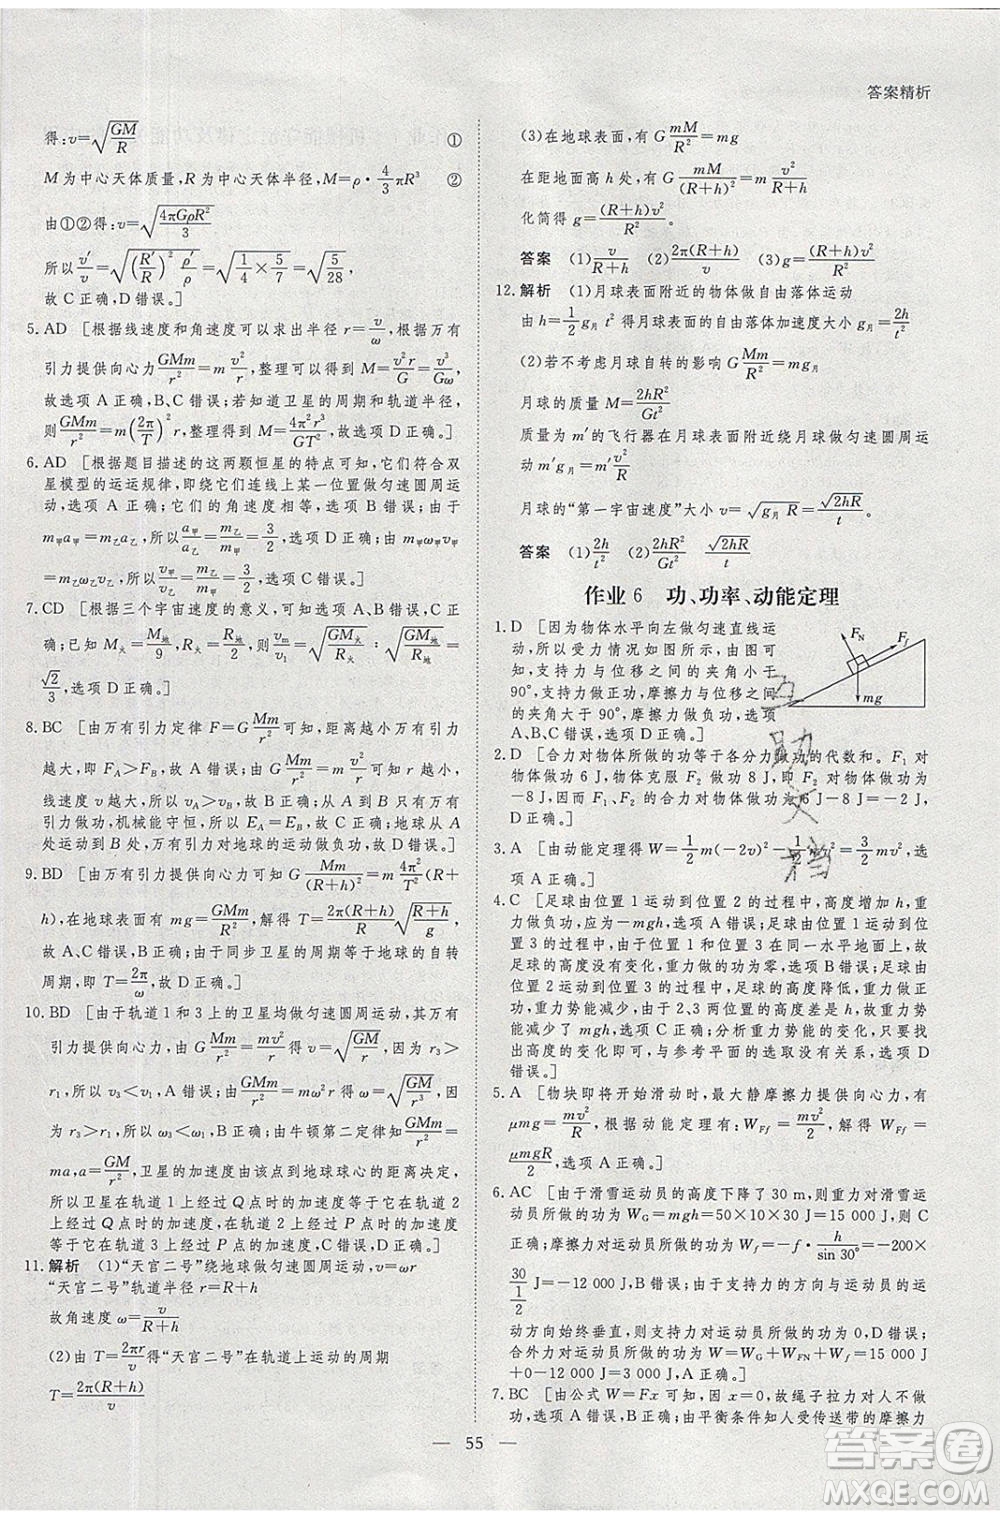 答案精析
得:v=√(GM/R) ①
M 为中心天体质量,R 为中心天体半径,M=ρ·4/3πR³ ②
由①②得:v=√(4πGρR²/3)
所以v′/v=√((R′/R)²·ρ′/ρ)=√(1/4×5/7)=√(5/28)
故 C 正确,D 错误。]
5. AD [根据线速度和角速度可以求出半径 r=v/ω,根据万有
引力提供向心力GMm/r²=m v²/r,整理可以得到 M=v²r/G=v³/Gω,
故选项 A 正确,B、C 错误;若知道卫星的周期和轨道半径,
则GMm/r²=m(2π/T)²r,整理得到 M=4π²r³/GT²,故选项 D 正确。]
6. AD [根据题目描述的这两颗恒星的特点可知,它们符合双
星模型的运运规律,即绕它们连线上某一位置做匀速圆周运
动,选项 A 正确;它们的角速度相等,选项 B 错误;由于
m甲a甲=m乙a乙,所以a甲/a乙=m乙/m甲=3/2,选项 C 错误;由 m甲ω甲v甲
=m乙ω乙v乙,所以v甲/v乙=m乙/m甲=3/2,选项 D 正确。]
7. CD [根据三个宇宙速度的意义,可知选项 A、B 错误,选项
C 正确;已知 M火=M地/9,R火=R地/2,则vm/v1=√(GM火/R火):√(GM地/R地)=
√2/3,选项 D 正确。]
8. BC [由万有引力定律 F=G Mm/r²可知,距离越小万有引力
越大,即 FA>FB,故选项 A 错误;由 G Mm/r²=m v²/r可知 r 越小,
线速度 v 越大,所以 vA>vB,故选项 B 正确;卫星只有万有
引力做功,机械能守恒,所以 EA=EB,故 C 正确;卫星从 A
处运动到 B 处,万有引力对地球的运动做负功,故 D 错误。]
9. BD [由万有引力提供向心力 G Mm/(R+h)²=m 4π²/T²(R+
h),在地球表面有 mg=GMm/R²,解得 T=2π(R+h)/R √((R+h)/g)
故 A、C 错误,B 正确;由于同步卫星的周期等于地球的自转
周期,即 T=2π/ω,D 正确。]
10. BD [由于轨道 1 和 3 上的卫星均做匀速圆周运动,其万有
引力提供向心力,由 G Mm/r²=mv²/r得 v=√(GM/r),因为 r3>
r1,所以 v3<v1,A 错误;由 GMm/r²=mω²r 得 ω=√(GM/r³),因
为 r3>r1,所以 ω3<ω1,B 正确;由牛顿第二定律知GMm/r²=
ma,a=GM/r²,卫星的加速度由该点到地球球心的距离决定,
所以卫星在轨道 1 上经过 Q 点时的加速度等于它在轨道 2
上经过 Q 点时的加速度,卫星在轨道 2 上经过 P 点时的加
速度等于它在轨道 3 上经过 P 点时的加速度,C 错误,D
正确。]
11. 解析 (1)“天宫二号”绕地球做匀速圆周运动,v=ωr
“天宫二号”轨道半径 r=R+h
故角速度 ω=v/(R+h)
(2)由 T=2πr/v得“天宫二号”在轨道上运动的周期
T=2π(R+h)/v
(3)在地球表面,有 G mM/R²=mg
在距地面高 h 处,有 G mM/(R+h)²=m v²/(R+h)
化简得 g=(R+h)v²/R²。
答案 (1)v/(R+h) (2)2π(R+h)/v (3)g=(R+h)v²/R²
12. 解析 (1)月球表面附近的物体做自由落体运动
由 h=1/2 g月 t² 得月球表面的自由落体加速度大小 g月=2h/t²
(2)若不考虑月球自转的影响 G Mm/R²=mg月
月球的质量 M=2hR²/Gt²
质量为 m′的飞行器在月球表面附近绕月球做匀速圆周运
动 m′g月=m′v²/R
月球的“第一宇宙速度”大小 v=√(g月 R)=√(2hR)/t。
答案 (1)2h/t² (2)2hR²/Gt² √(2hR)/t
作业 6 功、功率、动能定理
1. D [因为物体水平向左做匀速直线运
动,所以受力情况如图所示,由图可
知,支持力与位移之间的夹角小于
90°,支持力做正功,摩擦力与位移之间
的夹角大于 90°,摩擦力做负功,选项
A、B、C 错误,选项 D 正确。]
FN
Ff
mg
2. D [合力对物体所做的功等于各分力做功的代数和。F1 对
物体做功 6 J,物体克服 F2 做功 8 J,即 F2 对物体做功为
-8 J,所以 F1、F2 的合力对物体做功为 6 J-8 J=-2 J,D
正确。]
3. A [由动能定理得 W=1/2 m(-2v)²-1/2 mv²=3/2 mv²,选
项 A 正确。]
4. C [足球由位置 1 运动到位置 2 的过程中,高度增加 h,重
力做负功,应为-mgh,选项 A、B 错误;足球由位置 1 运动到位置
3 的过程中,由于位置 1 和位置 3 在同一水平地面上,故
足球的高度没有变化,重力做的功为零,选项 C
正确;足球由位置 2 运动到位置 3 的过程中,足球的高度降低,重力做
正功,重力势能减少,由于 2、3 两位置的高度差是 h,故重力
势能减少了 mgh,选项 D 错误;分析重力势能的变化,只要找出
高度的变化即可,与参考平面的选取没有关系。]
5. A [物块即将开始滑动时,最大静摩擦力提供向心力,有
μmg=mv²/R,根据动能定理有:WFf=1/2 mv²,解得:WFf=
μmgR/2,选项 A 正确。]
6. AC [由于滑雪运动员的高度下降了 30 m,所以重力对滑雪
运动员所做的功为 WG=mgh=50×10×30 J=15 000 J,A
正确;摩擦力对运动员所做的功为 WFf=-f·h/sin 30°=-400×
30/(1/2) J=-12 000 J,B 错误;由于支持力的方向与运动员的运
动方向始终垂直,所以支持力对运动员所做的功为 0,C 正确;
合外力对运动员所做的功为 W=WG+WFN+WFf=15 000 J
+0-12 000 J=3 000 J,D 错误。]
7. BC [由公式 W=Fx 可知,因 x=0,故绳子拉力对人不做
功,故 A 错误;由平衡条件知人受传送带的摩擦力
55
互助文档
答案卷
MXQE.COM